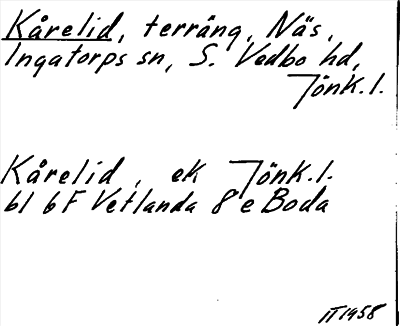 Kårelid, terräng, Näs,
Ingatorps sn, S. Vedbo hd,
Jönk.l.
Kårelid, ek Jönk.l.
bl 6F Vetlanda 8e Boda
IT 1958